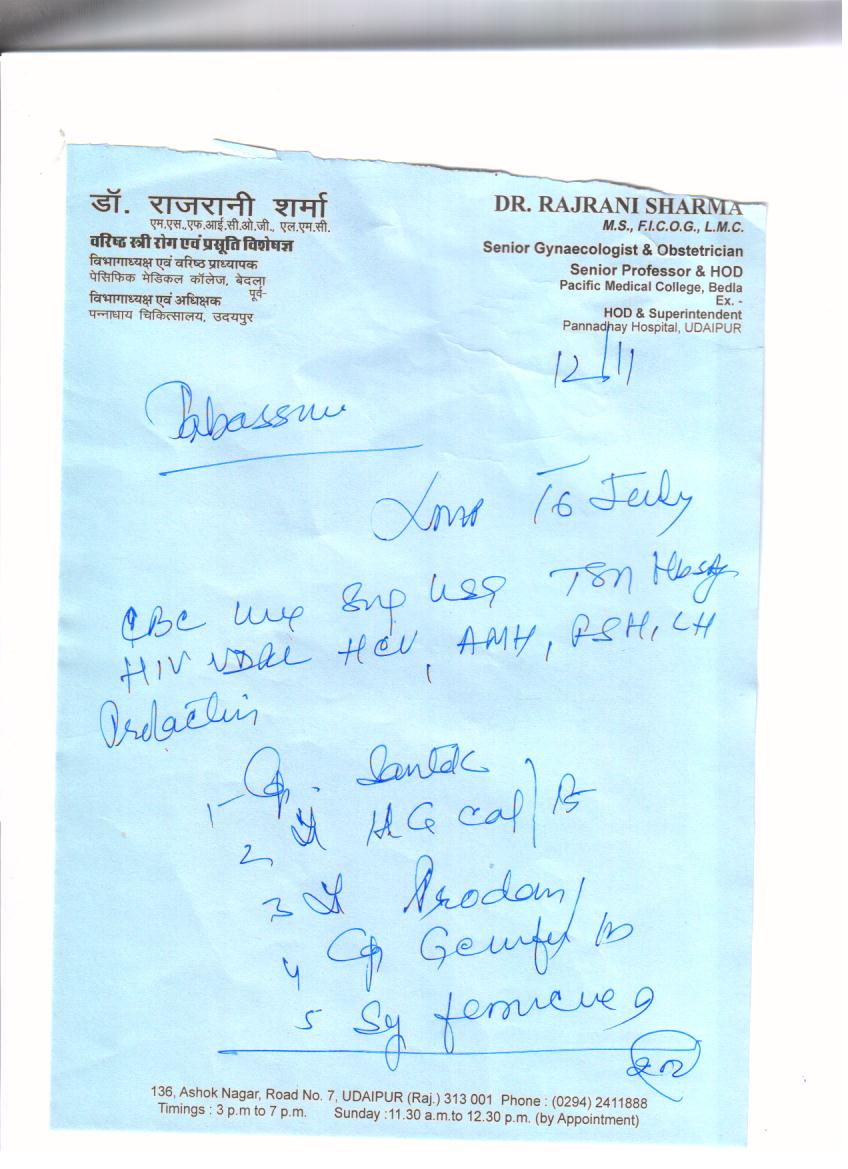 डॉ. राजरानी शर्मा
एम.एस.,एफ.आई.सी.ओ.जी., एल.एम.सी.
वरिष्ठ स्त्री रोग एवं प्रसूति विशेषज्ञ
विभागाध्यक्ष एवं वरिष्ठ प्राध्यापक
पेसिफिक मेडिकल कॉलेज, बेदला
पूर्व-
विभागाध्यक्ष एवं अधिक्षक
पन्नाधाय चिकित्सालय, उदयपुर
DR. RAJRANI SHARMA
M.S., F.I.C.O.G., L.M.C.
Senior Gynaecologist & Obstetrician
Senior Professor & HOD
Pacific Medical College, Bedla
Ex. -
HOD & Superintendent
Pannadhay Hospital, UDAIPUR
12/11
Tabassum
LMP 16 July
CBC TSH HbsAg
HIV VDRL HCV, AMH, FSH, LH
Prolactin
1- Cp.
2 HG cal
3
4 Cp
5 Sy
136, Ashok Nagar, Road No. 7, UDAIPUR (Raj.) 313 001 Phone : (0294) 2411888
Timings : 3 p.m to 7 p.m. Sunday :11.30 a.m.to 12.30 p.m. (by Appointment)